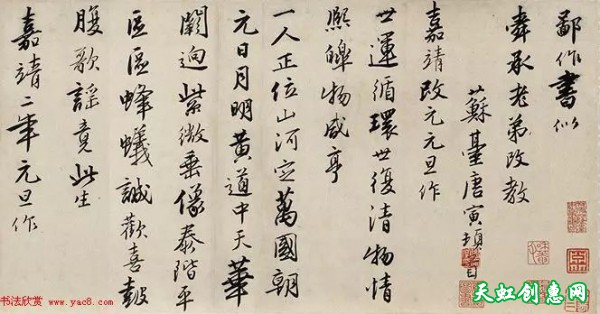 鄙作書似
舜承老弟改教
蘇臺唐寅頓首
嘉靖改元元旦作
世運循環世復清物情
熙皡物咸亨
一人正位山河定萬國朝
元日月明黃道中天華
闕迥紫微垂像泰階平
區區蜂蟻誠歡喜鼓
腹歌謠竟此生
嘉靖二年元旦作
书法欣赏 www.yac8.com
天虹创意网